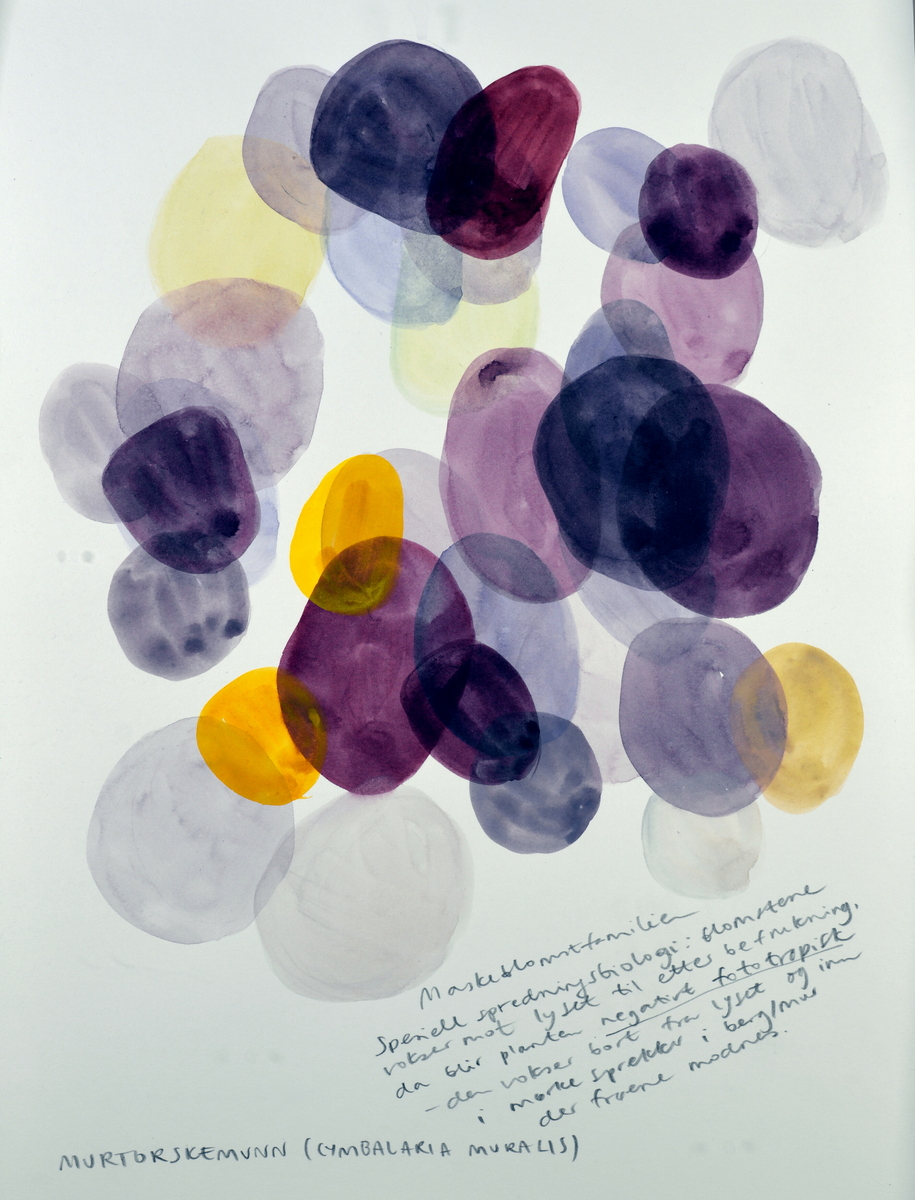 Maskeblomstfamilien
Spesiell spredningsbiologi: blomstene
vokser mot lyset til etter befruktning,
da blir planten negativt fototropisk
- den vokser bort fra lyset og inn
i mørke sprekker i berg/mur
der frøene modnes.
MURTORSKEMUNN (CYMBALARIA MURALIS)